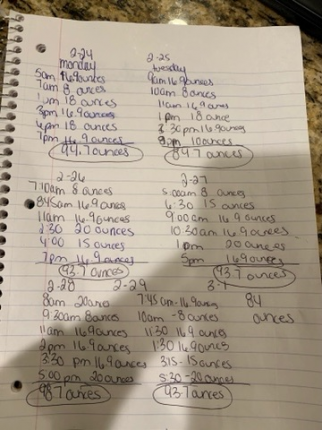 2-24
monday
5am 16.9 ounces
7am 8 ounces
1pm 18 ounces
3pm 16.9 ounces
4pm 18 ounces
7pm 16.9 ounces
94.7 ounces
2-25
tuesday
9am 16.9 ounces
10am 8 ounces
11am 16.9 ounces
1pm 18 ounce
3:30pm 16.9 ounces
8pm 10 ounces
89.7 ounces
2-26
7:10am 8 ounces
8:45am 16.9 ounces
11am 16.9 ounces
2:30 20 ounces
4:00 15 ounces
7pm 16.9 ounces
93.7 ounces
2-27
5:00am 8 ounces
6:30 15 ounces
9:00am 16.9 ounces
10:30am 16.9 ounces
1pm 20 ounces
5pm 16.9 ounces
93.7 ounces
2-28
8am 20 ounces
9:30am 8 ounces
11am 16.9 ounces
2pm 16.9 ounces
3:30 pm 16.9 ounces
5:00 pm 20 ounces
98.7 ounces
2-29
7:45am - 16.9 ounces
10am - 8 ounces
11:30 16.9 ounces
1:30 16.9 ounces
3:15 - 15 ounces
5:30 - 20 ounces
93.7 ounces
3-1
84
ounces